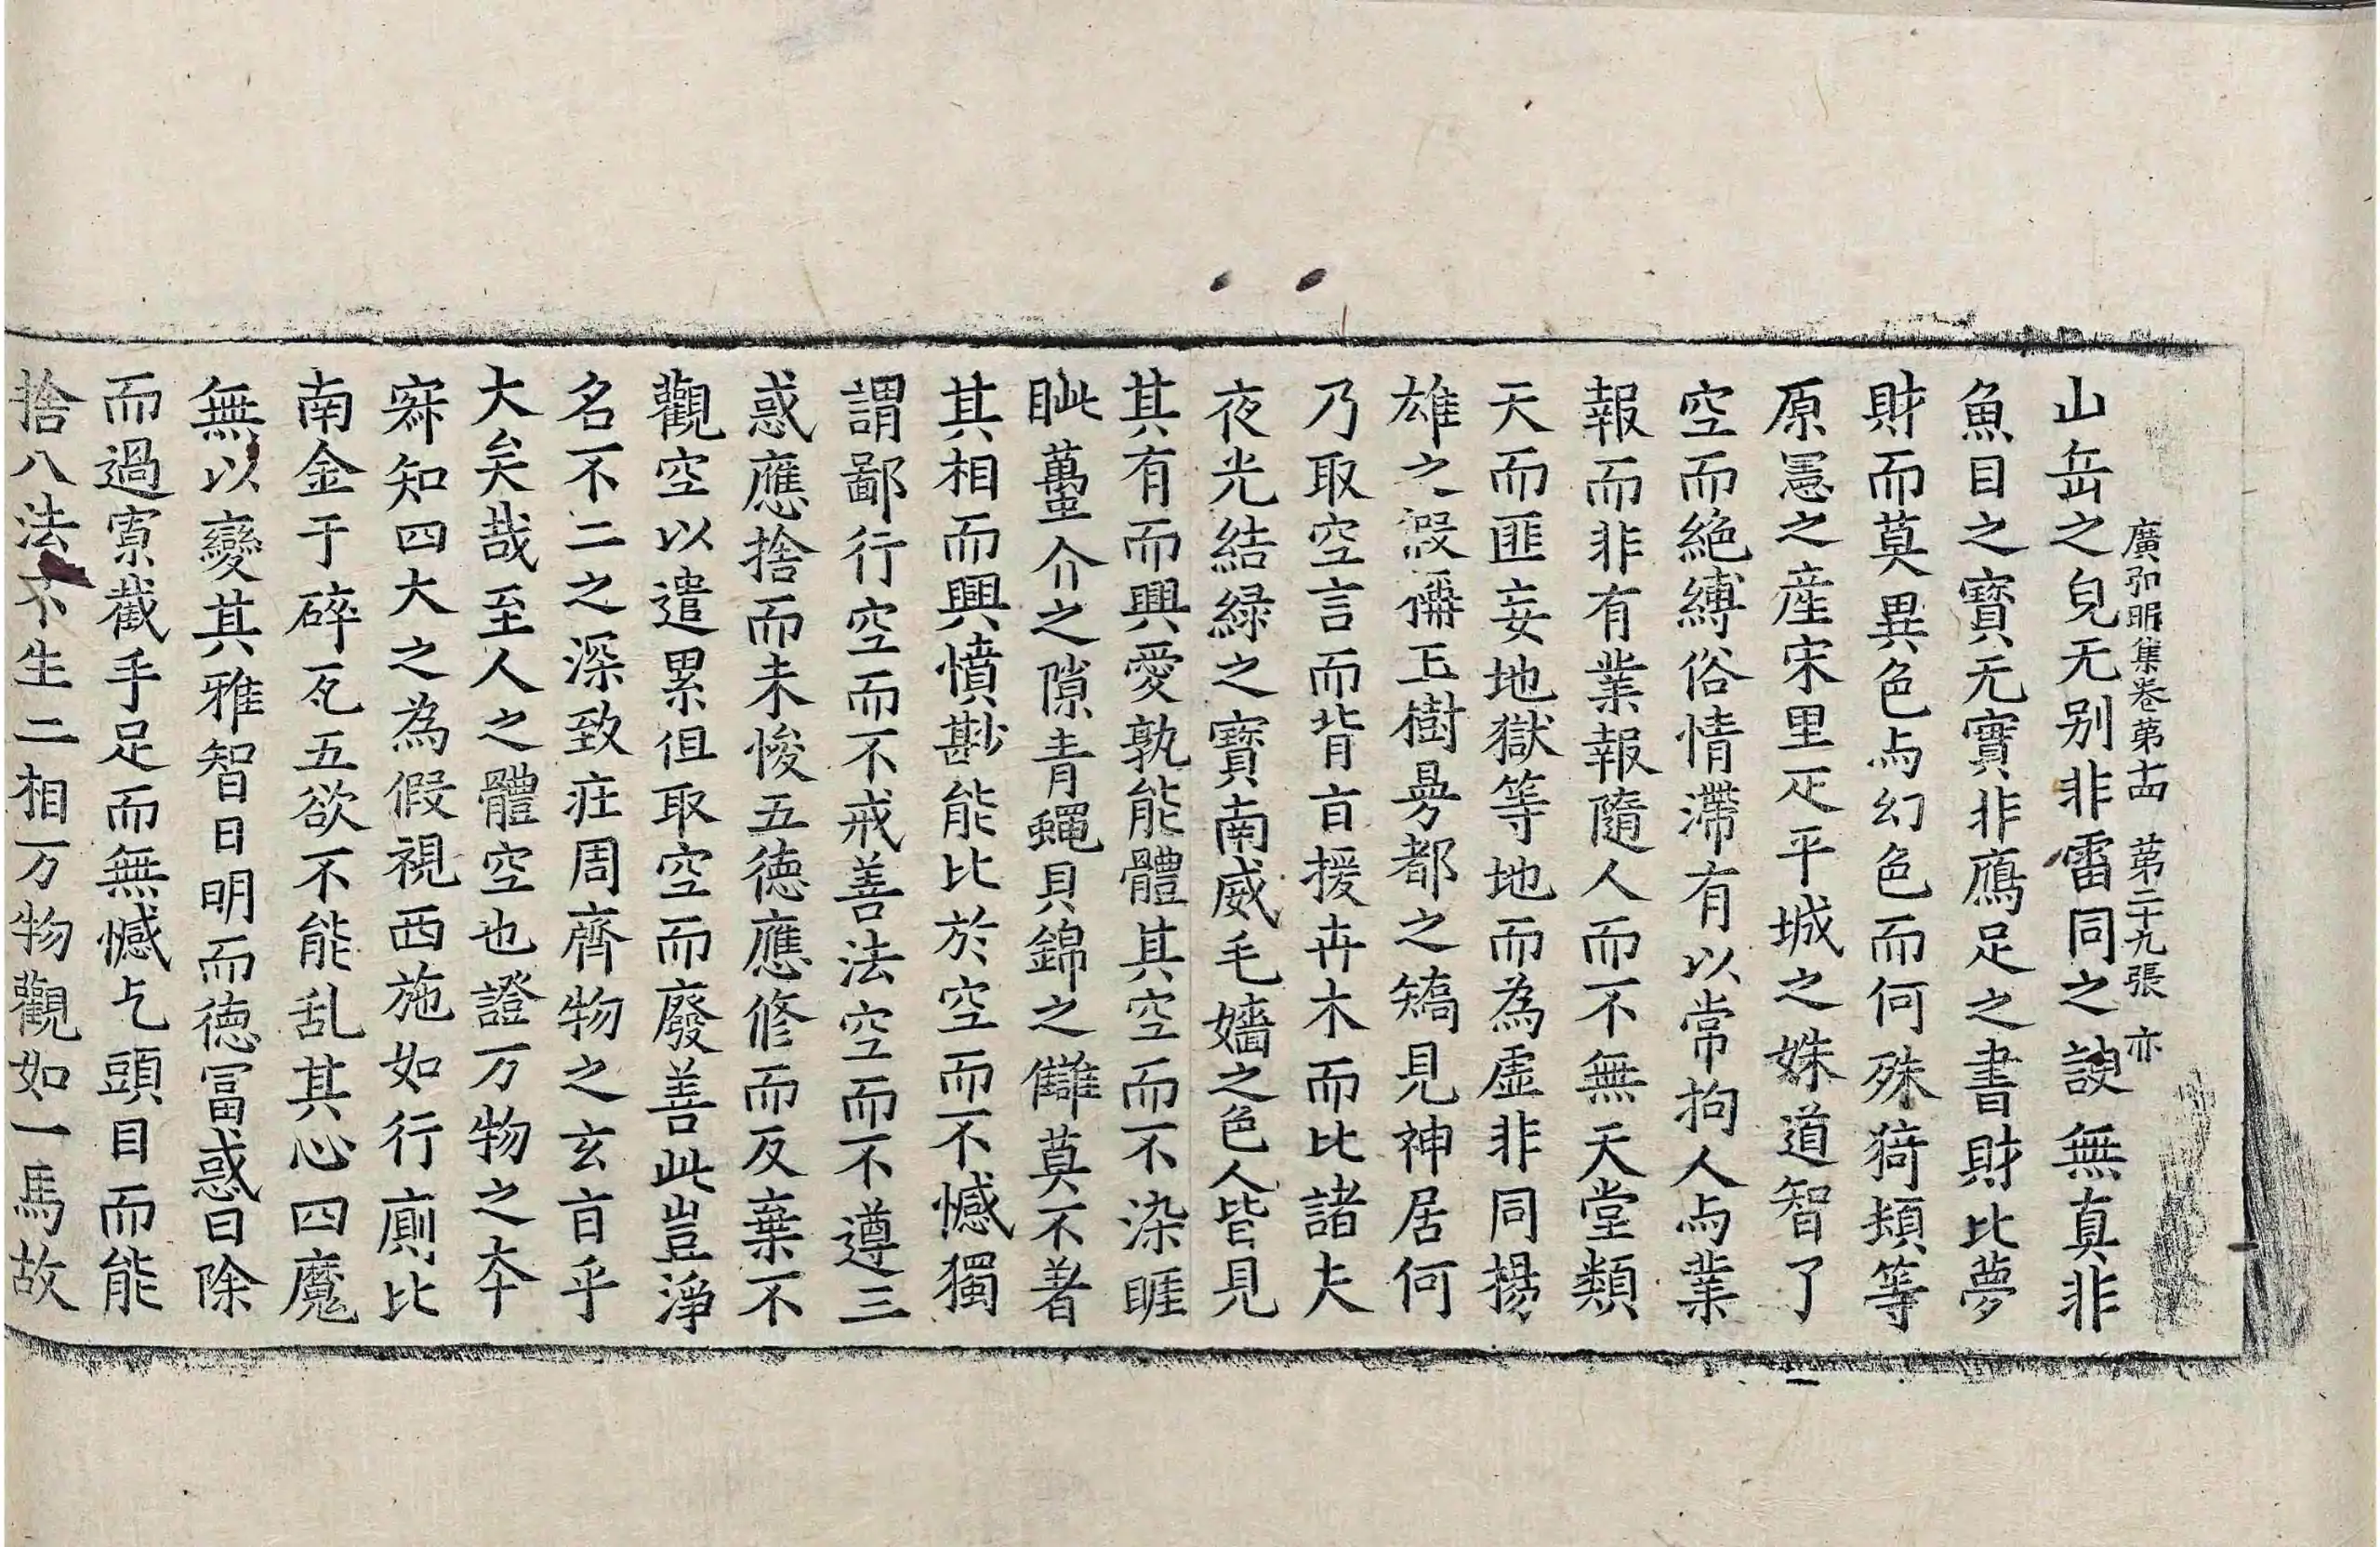 廣弘明集卷第十四 第二十九張 亦
山岳之皃无别非雷同之諛無真非
魚目之寳无實非鴈足之書財比夢
財而莫異色与幻色而何殊猗頓等
原憲之産宋里疋平城之姝道智了
空而絶縛俗情滯有以常拘人与業
報而非有業報隨人而不無天堂類
天而匪妄地獄等地而為虚非同揚
雄之假稱玉樹曼都之矯見神居何
乃取空言而背㫖援卉木而比諸夫
夜光結緑之寳南威毛嬙之色人皆見
其有而興愛孰能體其空而不染睚
眦蠆介之隙青蠅貝錦之讎莫不著
其相而興憤尠能比於空而不憾獨
謂鄙行空而不戒善法空而不遵三
惑應捨而未悛五德應修而反棄不
觀空以遣累但取空而廢善此豈淨
名不二之深致莊周齊物之玄㫖乎
大矣哉至人之體空也證万物之本
寂知四大之為假視西施如行廁比
南金于碎瓦五欲不能乱其心四魔
無以變其雅智日明而德冨惑日除
而過寡截手足而無憾乞頭目而能
捨八法不生二相万物觀如一馬故